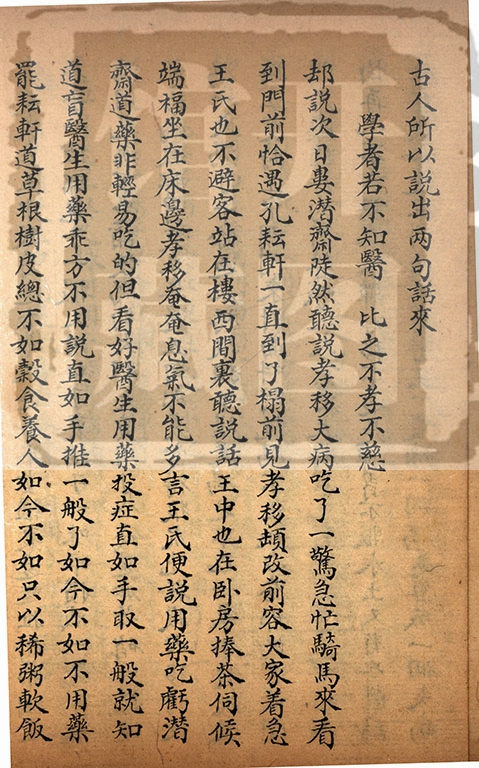 古人所以說出两句話來
學者若不知醫 比之不孝不慈
却說次日婁潜齋陡然聽說孝移大病吃了一驚急忙騎馬來看
到門前恰遇孔耘軒一直到了榻前見孝移頓改前容大家着急
王氏也不避客站在樓西間裏聽說話王中也在卧房捧茶伺候
端福坐在床邊孝移奄奄息氣不能多言王氏便說用藥吃虧潜
齋道藥非輕易吃的但看好醫生用藥投症直如手取一般就知
道盲醫生用藥乖方不用說直如手推一般了如今不如不用藥
罷耘軒道草根樹皮總不如穀食養人如今不如只以稀粥軟飯